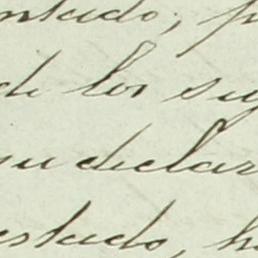 ntado, p
de los su
su declar
estado, h